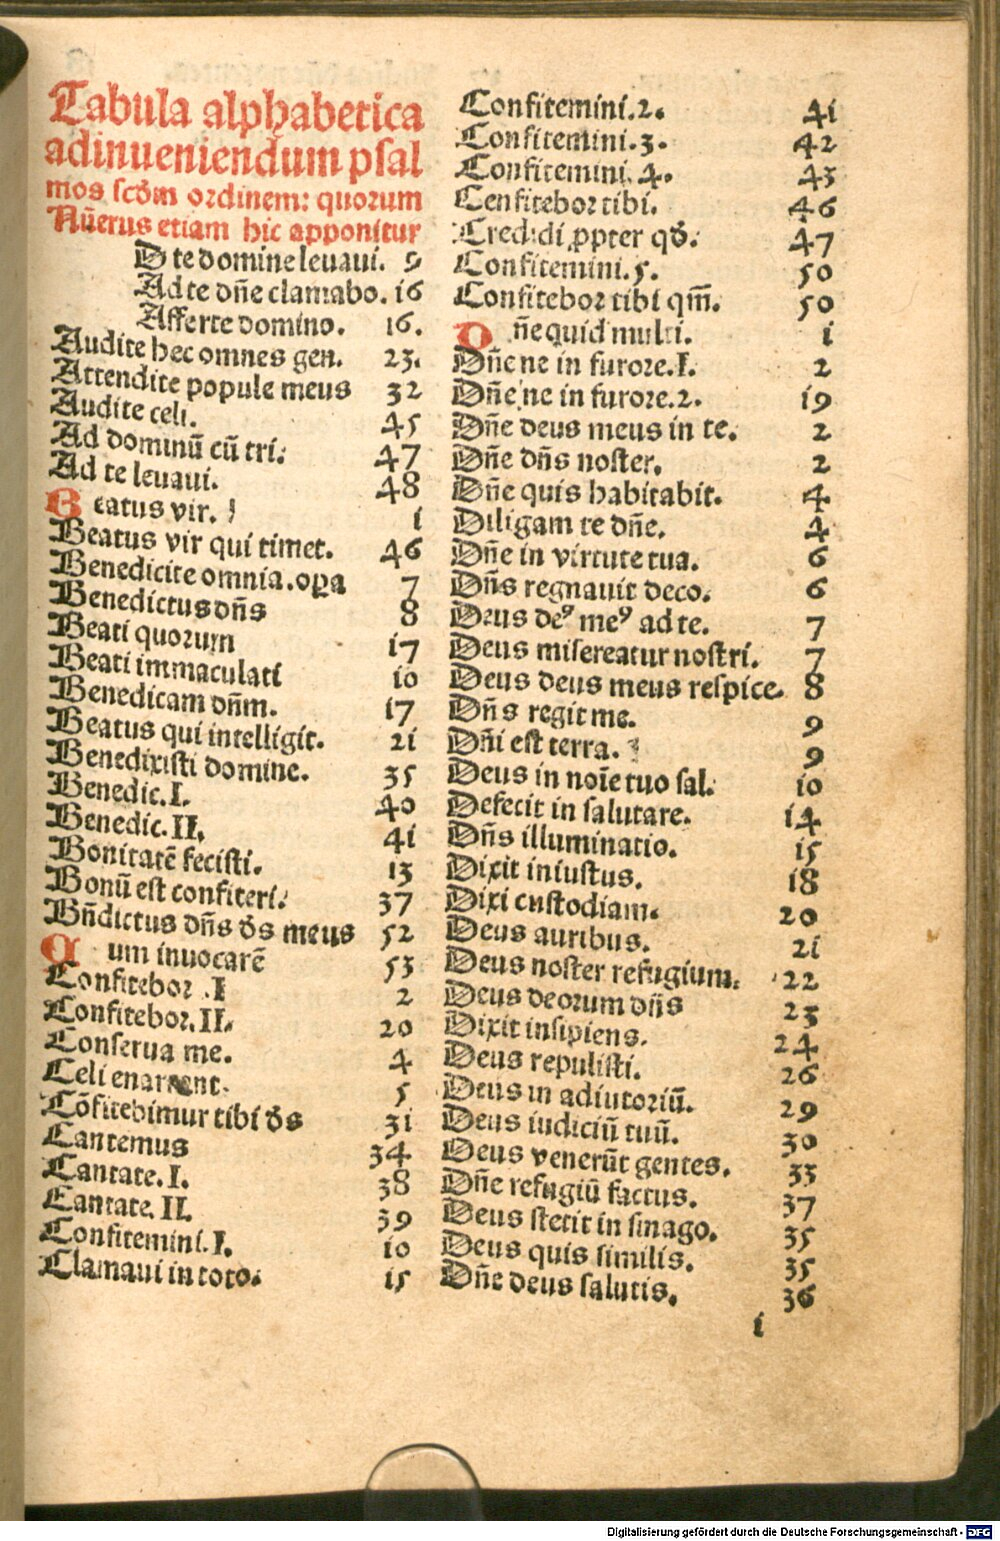 Tabula alphabetica
adinueniendum psal
mos scd̄m ordinem: quorum
Nūerus etiam hic apponitur
D te domine leuaui. 9
Ad te dn̄e clamabo. 16
Afferte domino. 16.
Audite hec omnes gen. 23.
Attendite popule meus 32
Audite celi. 45
Ad dominū cū tri. 47
Ad te leuaui. 48
Beatus vir. i
Beatus vir qui timet. 46
Benedicite omnia.oꝑa 7
Benedictus dn̄s 8
Beati quorum 17
Beati immaculati 10
Benedicam dn̄m. 17
Beatus qui intelligit. 21
Benedixisti domine. 35
Benedic.I. 40
Benedic.II. 41
Bonitatē fecisti. 13
Bonū est confiteri. 37
Bn̄dictus dn̄s ds̄ meus 52
Cum inuocarē 53
Confitebor .I 2
Confitebor.II. 20
Conserua me. 4
Celi enarrant. 5
Cōfitebimur tibi ds̄ 31
Cantemus 34
Cantate.I. 38
Cantate.II. 39
Confitemini.I. 10
Clamaui in toto. 15
Confitemini.2. 41
Confitemini.3. 42
Confitemini.4. 43
Confitebor tibi. 46
Credidi ꝓpter qd̄. 47
Confitemini.5. 50
Confitebor tibi qm̄. 50
Dn̄e quid multi. i
Dn̄e ne in furore.I. 2
Dn̄e ne in furore.2. 19
Dn̄e deus meus in te. 2
Dn̄e dn̄s noster. 2
Dn̄e quis habitabit. 4
Diligam te dn̄e. 4
Dn̄e in virtute tua. 6
Dn̄s regnauit deco. 6
Deus deꝰ meꝰ ad te. 7
Deus misereatur nostri. 7
Deus deus meus respice. 8
Dn̄s regit me. 9
Dn̄i est terra. 9
Deus in noīe tuo sal. 10
Defecit in salutare. 14
Dn̄s illuminatio. 15
Dixit iniustus. 18
Dixi custodiam. 20
Deus auribus. 21
Deus noster refugium. 22
Deus deorum dn̄s 23
Dixit insipiens. 24
Deus repulisti. 26
Deus in adiutoriū. 29
Deus iudiciū tuū. 30
Deus venerūt gentes. 33
Dn̄e refugiū factus. 37
Deus stetit in sinago. 35
Deus quis similis. 35
Dn̄e deus salutis. 36
i
Digitalisierung gefördert durch die Deutsche Forschungsgemeinschaft - DFG